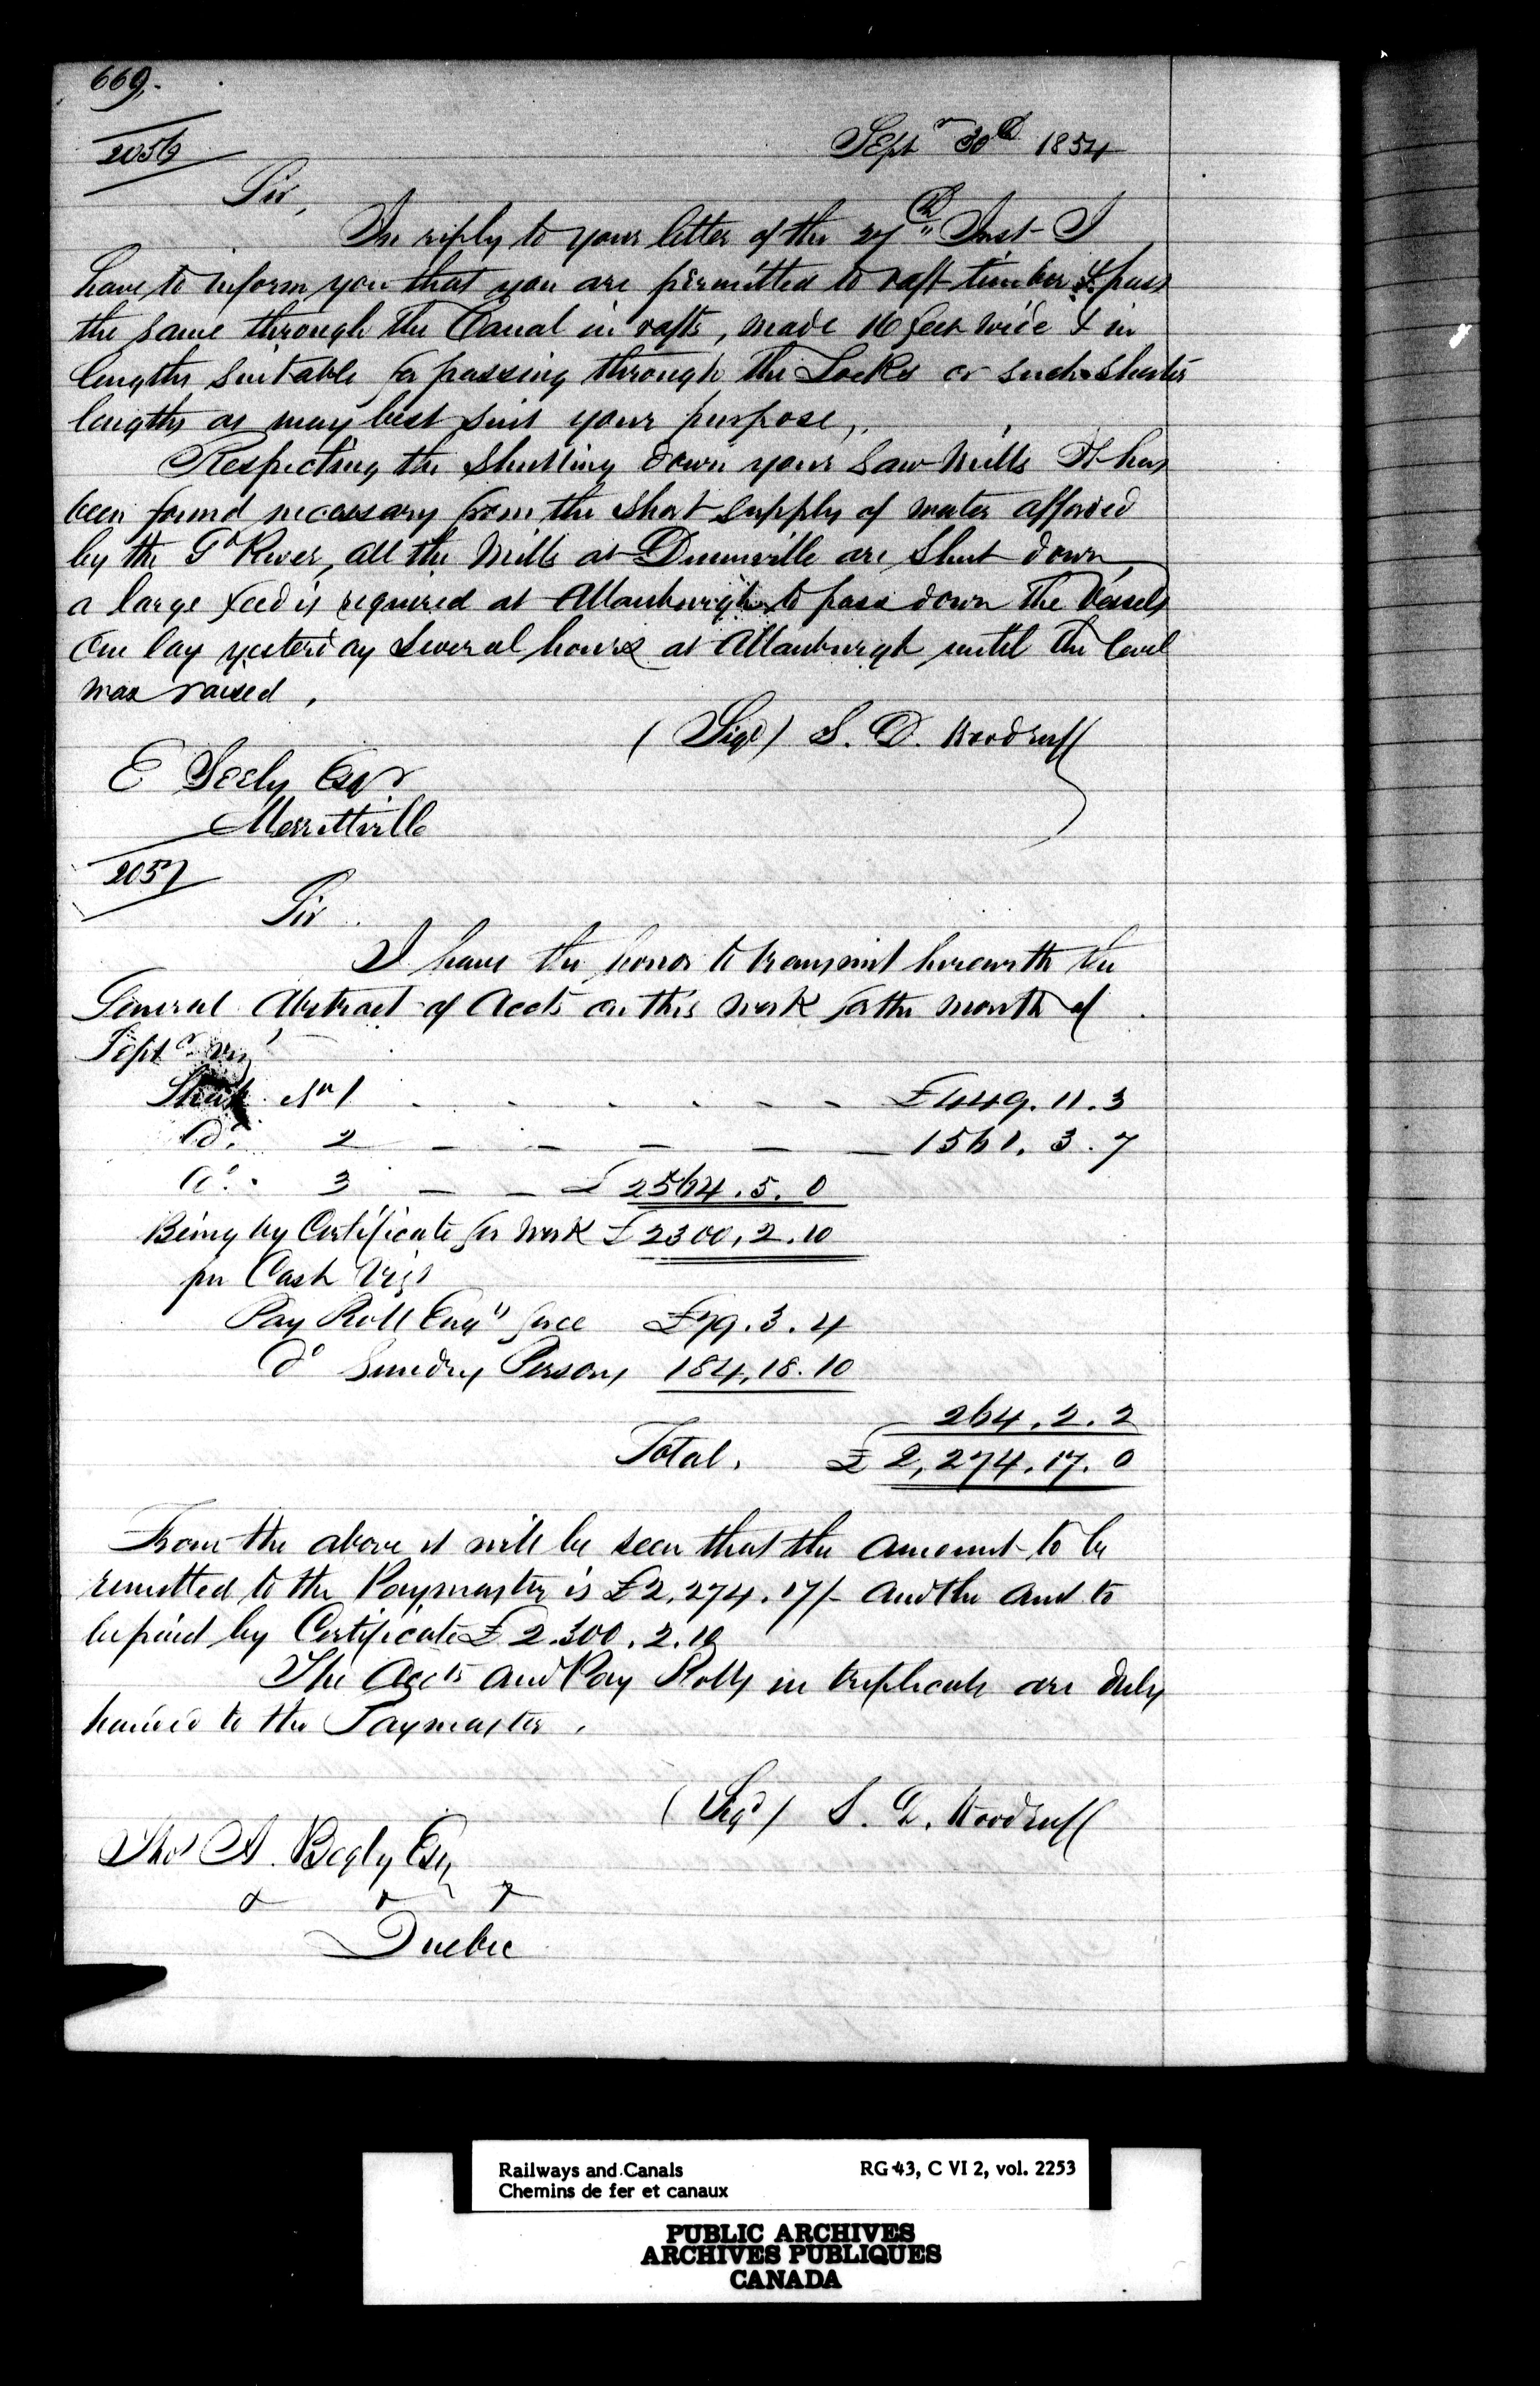 669.
2056
Septr 30th 1854
Sir,
In reply to your letter of the 27th Inst I
have to inform you that you are permitted to raft timber & pass
the same through the Canal in rafts, made 16 feet wide & in
lengths suitable for passing through the Locks or such shorter
lengths as may best suit your purpose,.
Respecting the shutting down your Saw Mills It has
been found necessary from the short supply of water afforded
by the Gd River, all the Mills at Dunnville are shut down,
a large feed is required at Allanburgh to pass down the Vessels
One lay yesterday several hours at Allanburgh until the level
was raised,
(Sigd) S. D. Woodruff
E Seely Esqr
Merrittville
2057
Sir
I have the honor to transmit herewith the
General Abstract of Accts on this work for the month of
Septr viz
Sheet No 1 - - - - - - £449.11.3
Do. 2 - - - - - 1561.3.7
Do. 3 - - £2564.5.0
Being by Certificate for Work £2300.2.10
per Cash Viz
Pay Roll Engr force £79.3.4
Do Sundry Persons 184.18.10
264.2.2
Total, £2,274.17.0
From the above it will be seen that the amount to be
remitted to the Paymaster is £2,274.17/- and the amt to
be paid by Certificate £2.300.2.10
The Accts and Pay Rolls in triplicate are duly
handed to the Paymaster.
(Sigd) S. D. Woodruff
Thos A. Begly Esq
& & &
Quebec
Railways and Canals RG 43, C VI 2, vol. 2253
Chemins de fer et canaux
PUBLIC ARCHIVES
ARCHIVES PUBLIQUES
CANADA